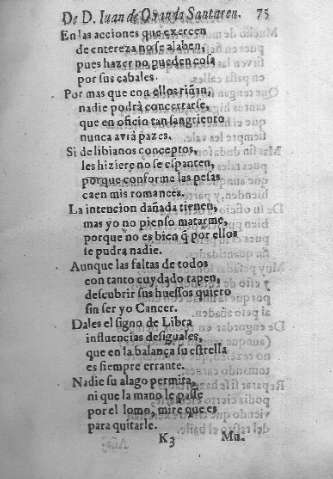 De D. Iuan de Ouando Santaren. 75
En las acciones que exercen
de entereza no se alaben,
pues hazer no pueden cosa
por sus cabales.
Por mas que con ellos riñan,
nadie podrà concertarse,
que en oficio tan sangriento
nunca aviá pazes.
Si de libianos conceptos,
les hiziere no se espanten,
porque conforme las pesas
caen mis romances.
La intencion dañada tienen,
mas yo no pienso matarme,
porque no es bien q̃ por ellos
se pudra nadie.
Aunque las faltas de todos
con tanto cuydado tapen,
descubrir sus huessos quiero
sin ser yo Cancer.
Dales el signo de Libra
influencias desiguales,
que en la balança su estrella
es siempre errante.
Nadie su alago permita,
ni que la mano le passe
por el lomo, mire que es
para quitarle.
K3 Mu.